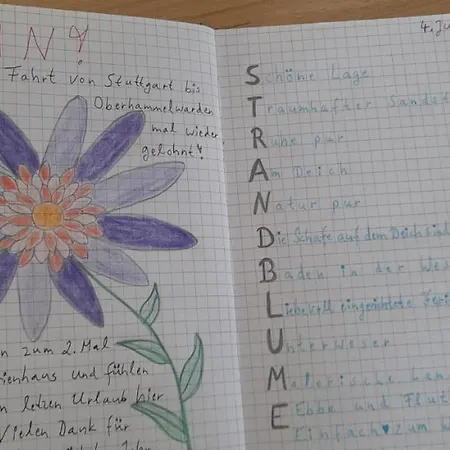 Fahrt von Stuttgart bis
Oberhammelwarden
mal wieder
gelohnt!
zum 2. Mal
und fühlen
letzen Urlaub hier
Vielen Dank für
4. Ju
Schöne Lage
Traumhafter Sandst
Ruhe pur
Am Deich
Natur pur
Die Schafe auf dem Deich sind
Baden in der Wes
Liebevoll eingerichtete Feri
Unterweser
Malerische Lan
Ebbe und Flut
Einfach ♥ zum